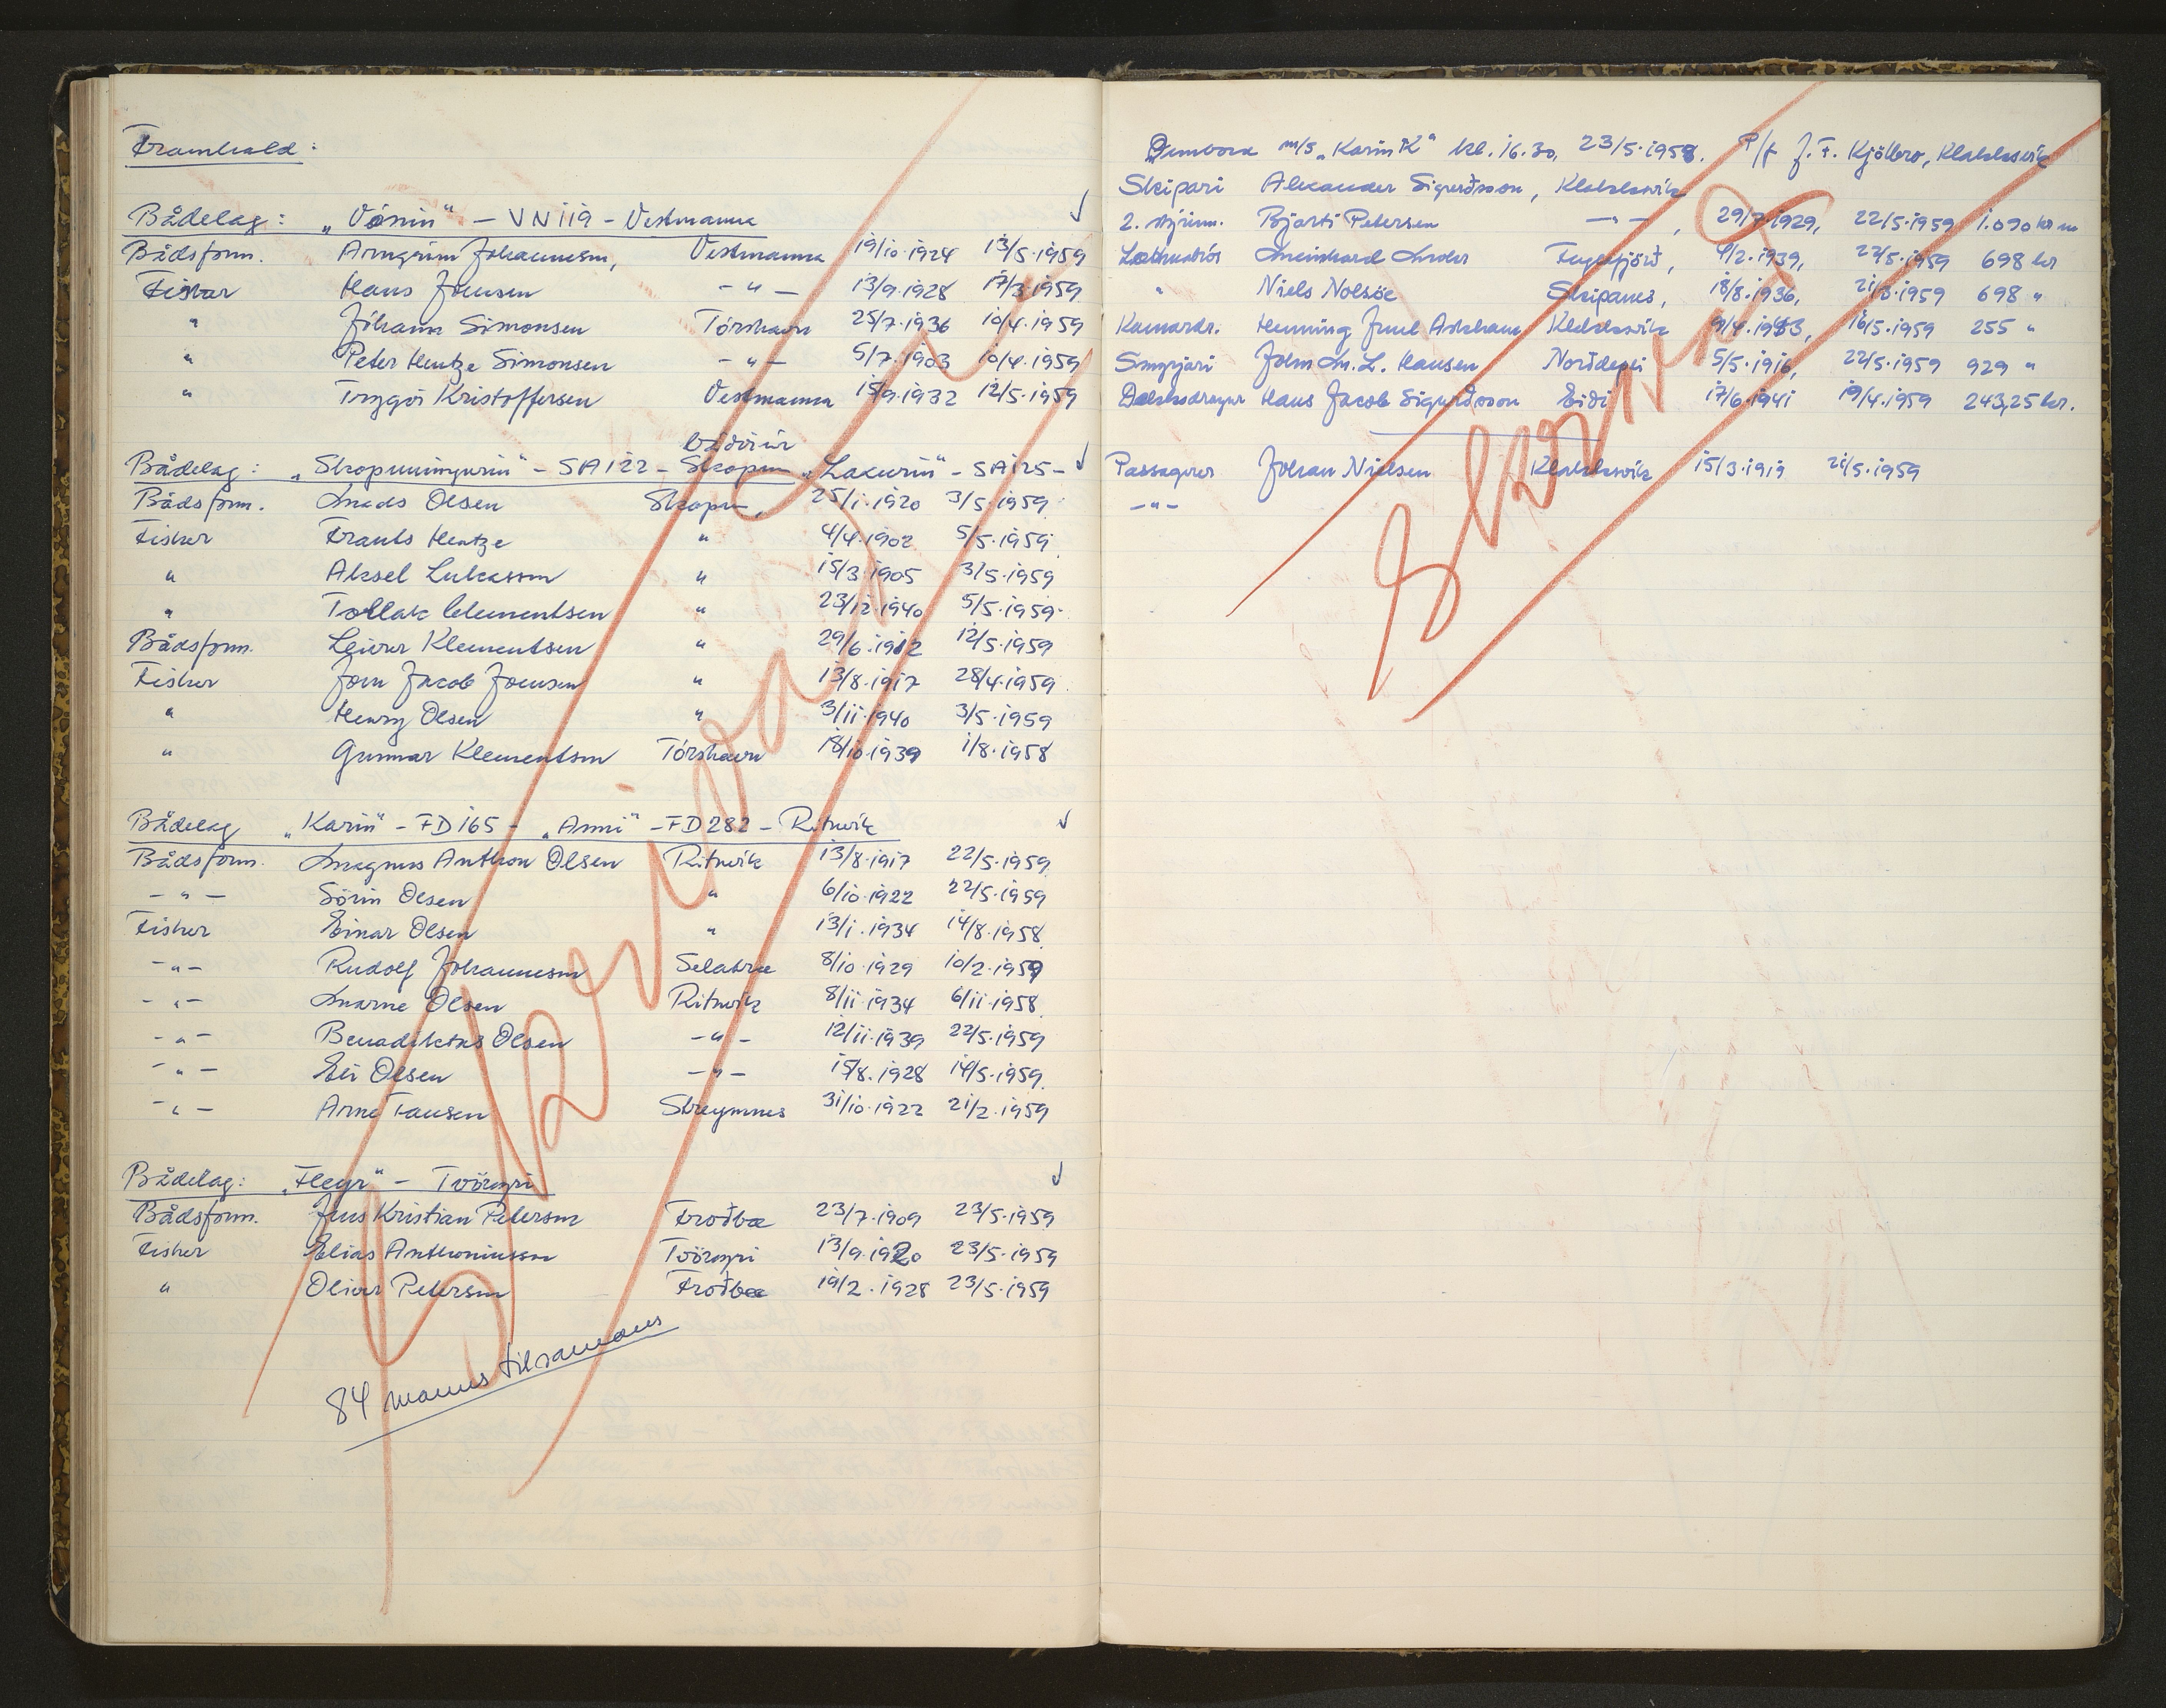 Framhald:
Bådelag: „Vónin" - VN119 - Vestmanna
Bådsform. Arngrim Johannesen, Vestmanna 19/10.1924 13/5.1959
Fiskar Hans Joensen -"- 13/9.1928 17/3.1959
" Jóhann Simonsen Tórshavn 25/7.1936 10/4.1959
" Peter Hentze Simonsen -"- 5/7.1903 10/4.1959
" Tryggvi Kristoffersen Vestmanna 15/9.1932 12/5.1959
báðir úr
Bådelag: „Skopunningurin" - SA122 - Skopun „Laxurin" - SA125 -
Bådsform. Mads Olsen Skopun, 25/1.1920 3/5.1959
Fisker Frants Hentze " 4/4.1902 5/5.1959
" Aksel Lukassen " 15/3.1905 3/5.1959
" Tollak Clementsen " 23/12.1940 5/5.1959
Bådsform. Leivur Klementsen " 29/6.1912 12/5.1959
Fisker Jorn Jacob Joensen " 13/8.1917 28/4.1959
" Henry Olsen " 3/11.1940 3/5.1959
" Gunnar Klementsen Tórshavn 18/10.1939 1/8.1958
Bådelag „Karin" - FD165 - „Anni" - FD282 - Rituvík
Bådsform. Magnus Anthon Olsen Rituvík 13/8.1917 22/5.1959
-"- Sörin Olsen " 6/10.1922 22/5.1959
Fisker Einar Olsen " 13/1.1934 14/8.1958
-"- Rudolf Johannesen Selatræ 8/10.1929 10/2.1959
-"- Marne Olsen Rituvík 8/11.1934 6/11.1958
-"- Benadiktus Olsen -"- 12/11.1939 22/5.1959
-"- Eli Olsen -"- 15/8.1928 14/5.1959
-"- Arne Hansen Streymnes 31/10.1922 21/2.1959
Bådelag: „Fleyr" - Tvöroyri
Bådsform. Jens Kristian Petersen Froðbæ 23/7.1909 23/5.1959
Fisker Elias Anthoniussen Tvöroyri 13/9.1920 23/5.1959
" Oliver Petersen Froðbæ 19/2.1928 23/5.1959
84 manns tilsamans
Afgreidd
Umborð m/s „Karin K" kl. 16.30, 23/5.1958. P/f J. F. Kjölbro, Klakksvík
Skipari Alexander Sigurðsson, Klakksvík
2. stýrim. Bjarti Petersen -"-, 29/7.1929, 22/5.1959 1.090 kr
Meinhard Fuglafjörð, 4/2.1939, 22/5.1959 698 kr
" Niels Nolsöe Skipanes, 18/8.1936, 21/5.1959 698 "
Kamardr. Henning Juul Klakksvík 9/4.1943, 16/5.1959 255 "
Smyrjari John M. L. Hansen Norðdepil 5/5.1916, 22/5.1959 929 "
Dekksdrengur Hans Jacob Sigurðsson Eiði 17/6.1941 19/4.1959 243,25 kr.
Passagerer Johan Nielsen Klakksvík 15/3.1919 21/5.1959
-"-